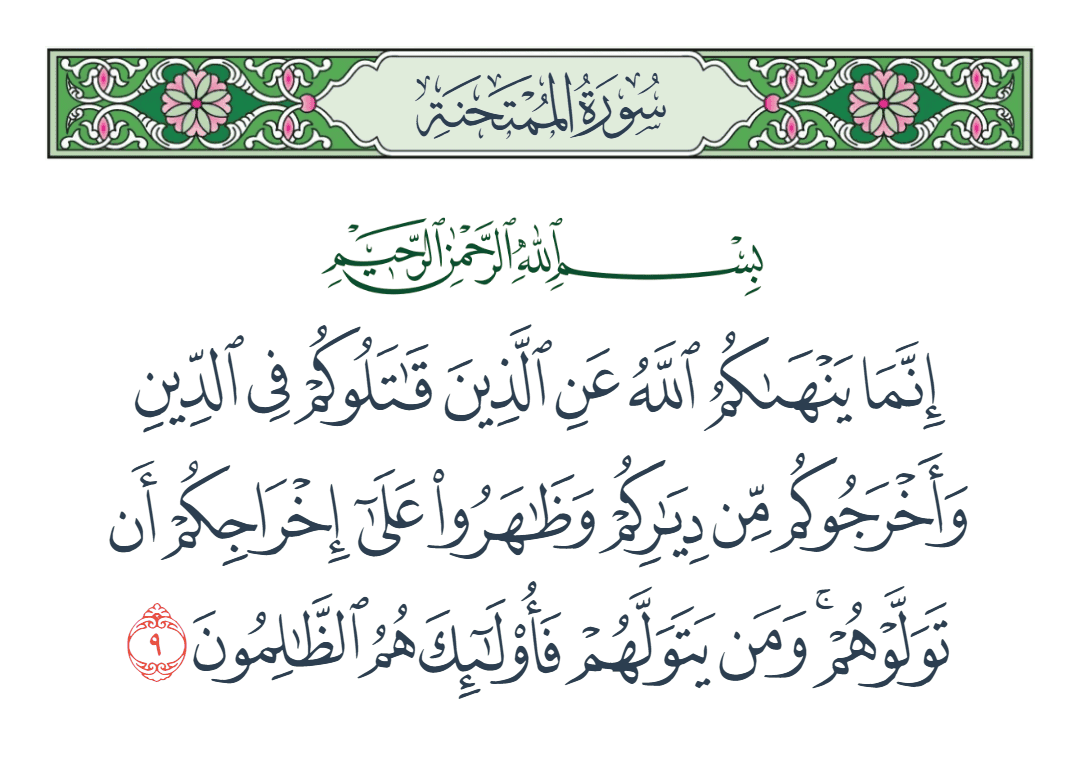 سُورَةُ الْمُمْتَحَنَةِ
بِسْمِ ٱللَّهِ ٱلرَّحْمَٰنِ ٱلرَّحِيمِ
إِنَّمَا يَنْهَىٰكُمُ ٱللَّهُ عَنِ ٱلَّذِينَ قَٰتَلُوكُمْ فِى ٱلدِّينِ
وَأَخْرَجُوكُم مِّن دِيَٰرِكُمْ وَظَٰهَرُوا۟ عَلَىٰٓ إِخْرَاجِكُمْ أَن
تَوَلَّوْهُمْ ۚ وَمَن يَتَوَلَّهُمْ فَأُو۟لَٰٓئِكَ هُمُ ٱلظَّٰلِمُونَ ٩